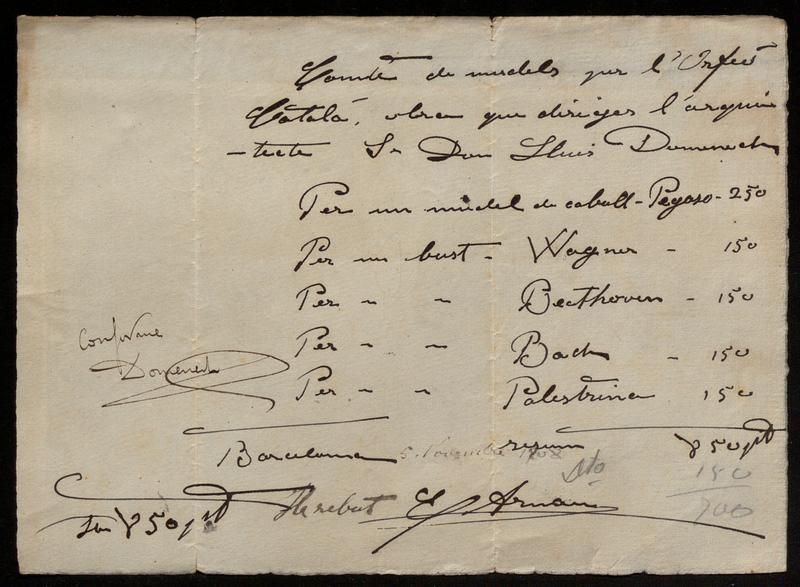 Comte de models per l'Orfeó
Català, obra que dirigeix l'arqui
-tecte Sr Don Lluis Domenech
Per un model de caball - Pegaso - 250
Per un bust - Wagner - 150
Per " " Beethoven - 150
Per " " Bach - 150
Per " " Palestrina 150
Conforme
Domenech
resum 850 pts
Barcelona 5 Novembre 1908
Dto 150
700
Son 850 pts He rebut E Arnau